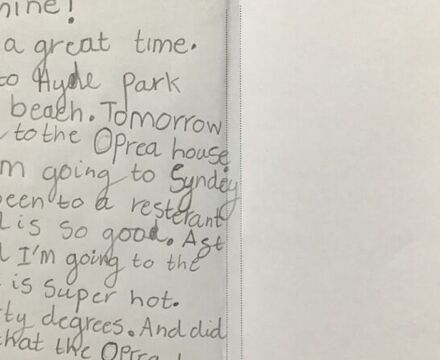 nine!
a great time.
to Hyde Park
beach. Tomorrow
to the Oprea house
m going to Syndey
een to a resterant
l is so good. Ast
l I'm going to the
is super hot.
ty degrees. And did
that the Oprea